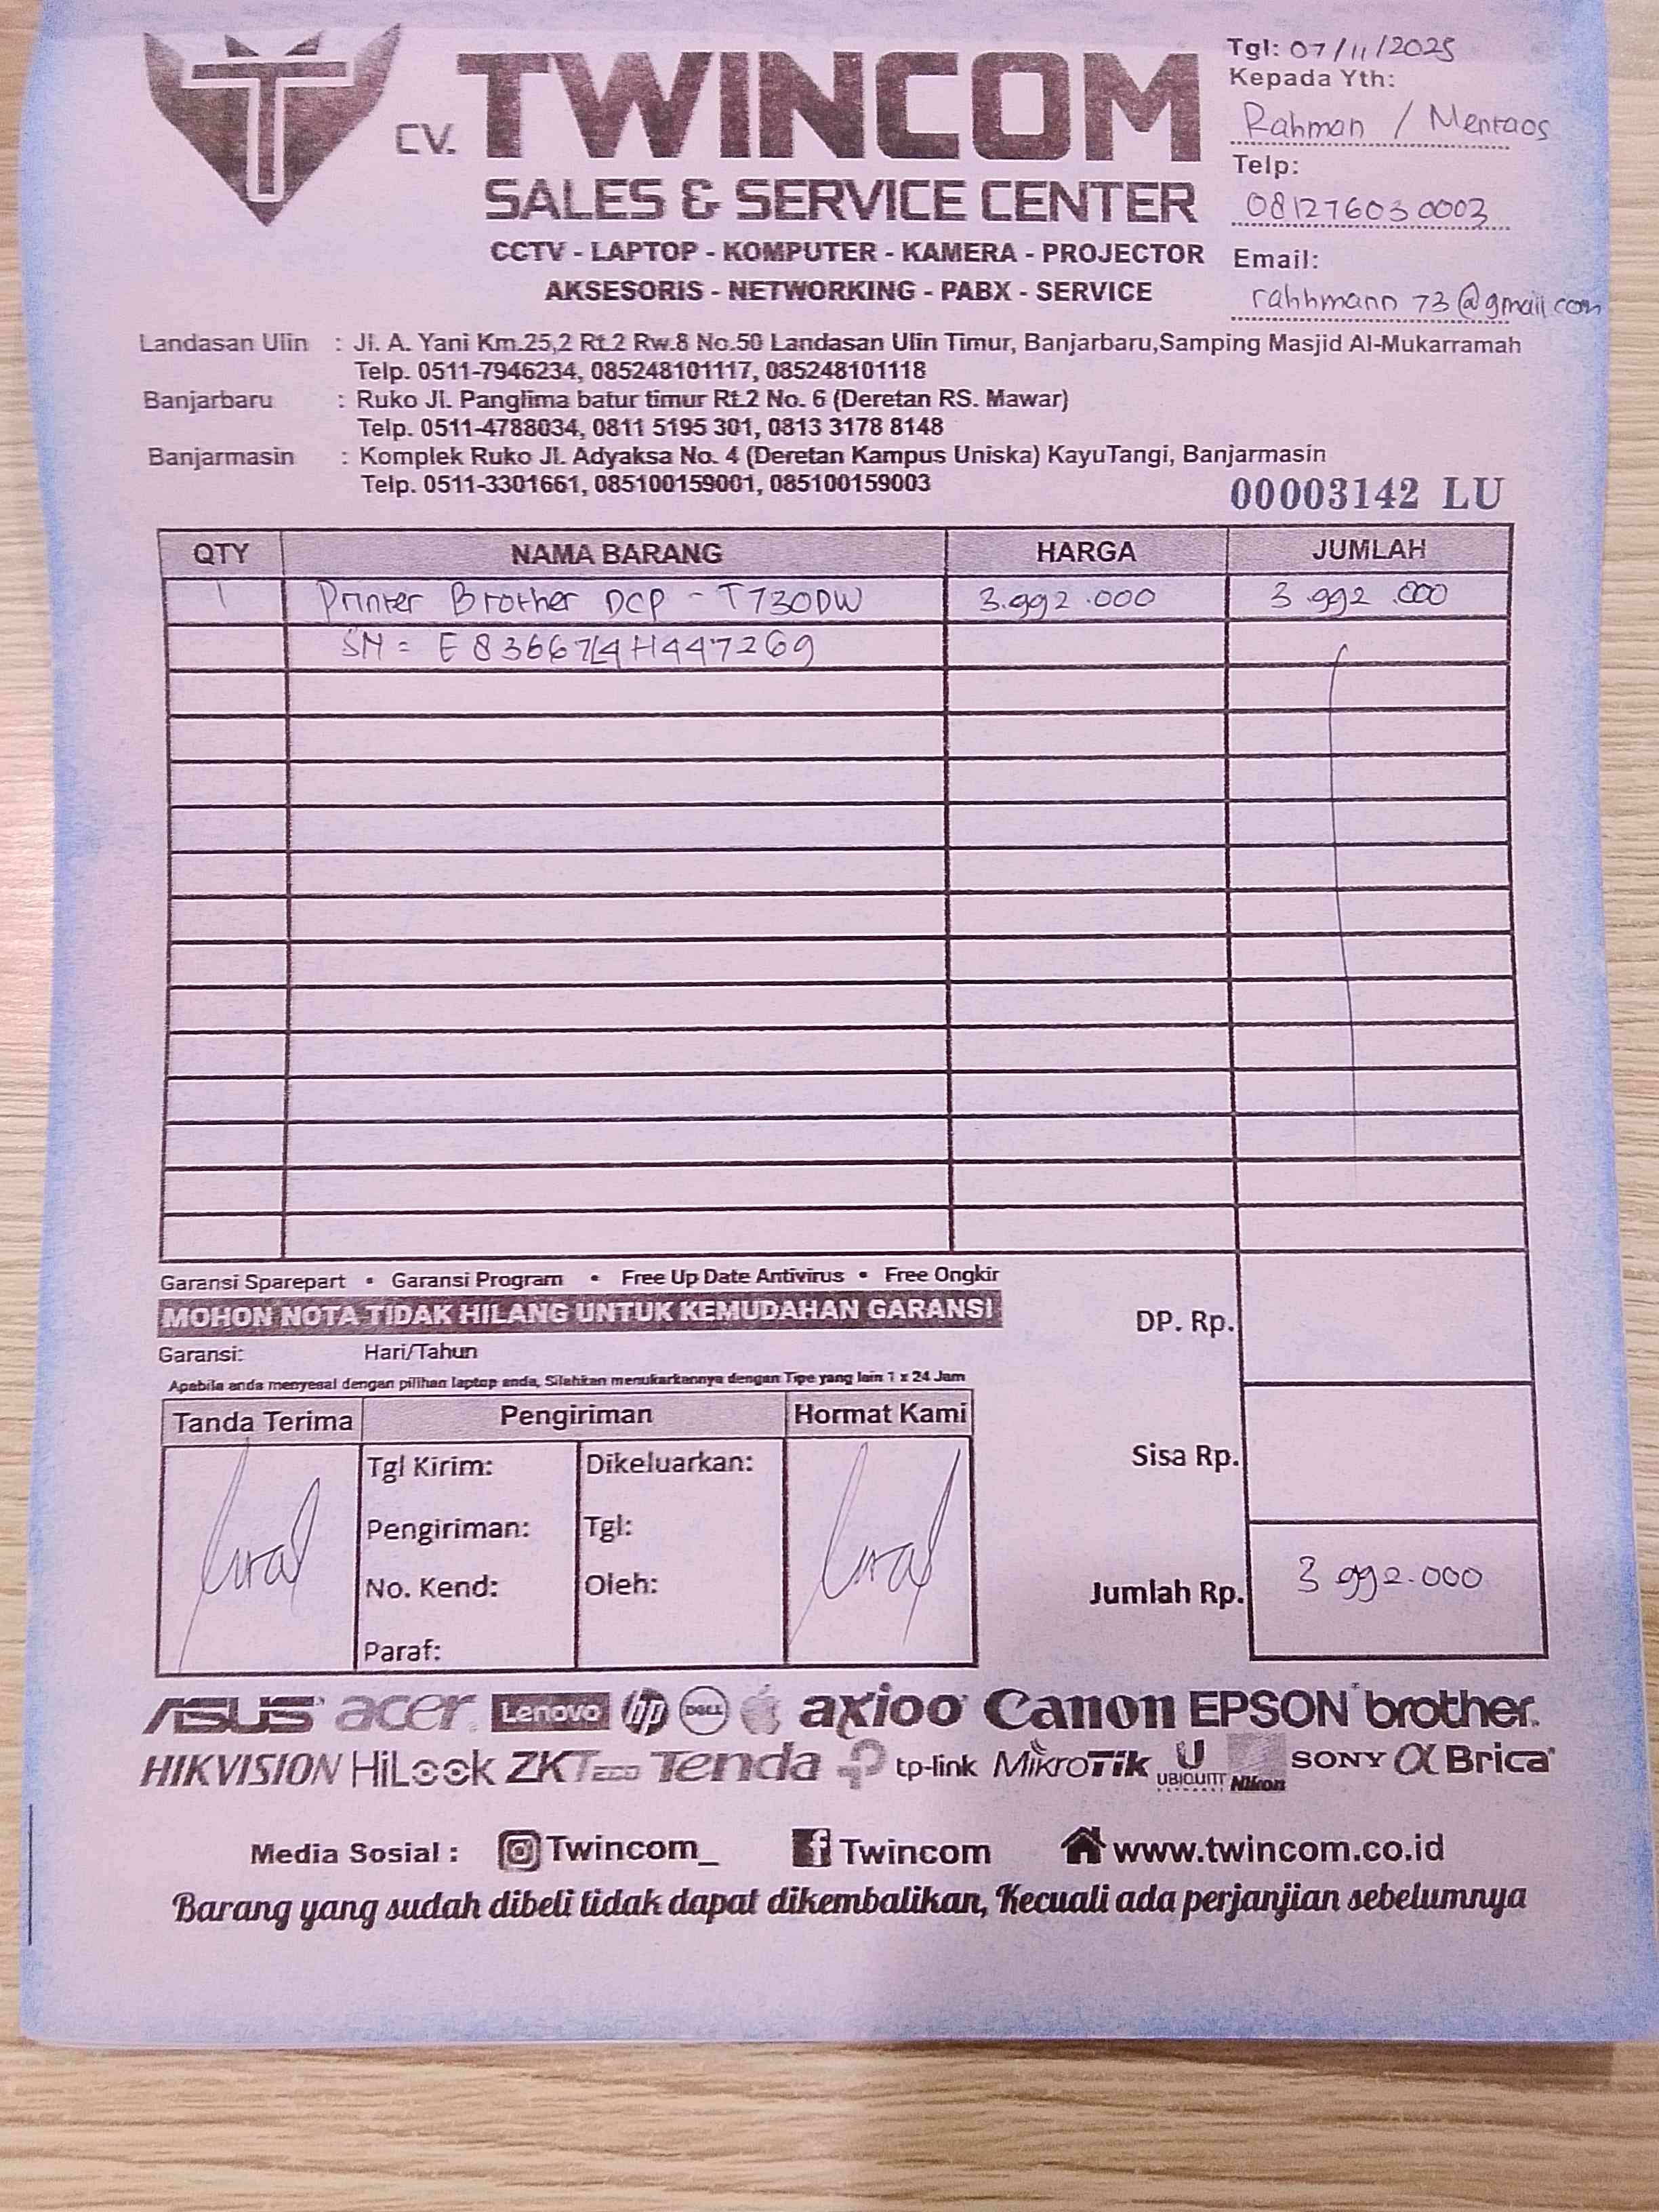 CV. TWINCOM
SALES & SERVICE CENTER
CCTV - LAPTOP - KOMPUTER - KAMERA - PROJECTOR
AKSESORIS - NETWORKING - PABX - SERVICE
Tgl: 07/11/2025
Kepada Yth:
Rahman / Mentaos
Telp:
081276030003
Email:
rahhmann 73@gmail.com
Landasan Ulin : Jl. A. Yani Km.25,2 Rt.2 Rw.8 No.50 Landasan Ulin Timur, Banjarbaru,Samping Masjid Al-Mukarramah
Telp. 0511-7946234, 085248101117, 085248101118
Banjarbaru : Ruko Jl. Panglima batur timur Rt.2 No. 6 (Deretan RS. Mawar)
Telp. 0511-4788034, 0811 5195 301, 0813 3178 8148
Banjarmasin : Komplek Ruko Jl. Adyaksa No. 4 (Deretan Kampus Uniska) KayuTangi, Banjarmasin
Telp. 0511-3301661, 085100159001, 085100159003
00003142 LU
QTY NAMA BARANG HARGA JUMLAH
1 Printer Brother DCP - T730DW 3.992.000 3.992.000
SN =
Garansi Sparepart • Garansi Program • Free Up Date Antivirus • Free Ongkir
MOHON NOTA TIDAK HILANG UNTUK KEMUDAHAN GARANSI
Garansi: Hari/Tahun
Apabila anda menyesal dengan pilihan laptop anda, Silahkan menukarkannya dengan Tipe yang lain 1 x 24 Jam
DP. Rp.
Sisa Rp.
Jumlah Rp. 3 992.000
Tanda Terima Pengiriman Hormat Kami
Tgl Kirim: Dikeluarkan:
Pengiriman: Tgl:
No. Kend: Oleh:
Paraf:
ASUS acer Lenovo hp DELL axioo Canon EPSON brother
HIKVISION HiLook ZKTeco Tenda tp-link MikroTik UBIQUITI Nikon SONY α Brica
Media Sosial : Twincom_ Twincom www.twincom.co.id
Barang yang sudah dibeli tidak dapat dikembalikan, Kecuali ada perjanjian sebelumnya